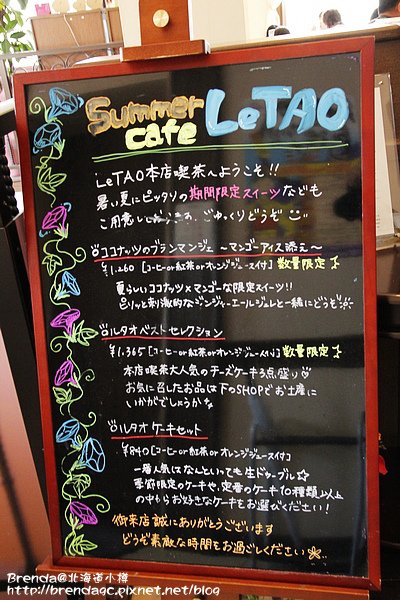 Summer cafe LeTAO
LeTAO本店喫茶へようこそ!!
暑い夏にピッタリの期間限定スイーツなども
ご用意しております。ごゆっくりどうぞ
ココナッツのブランマンジェ 〜マンゴーアイス添え〜
¥1.260 [コーヒーor紅茶orオレンジジュース付] 数量限定
夏らしいココナッツ×マンゴーな限定スイーツ!!
ピリッと刺激的なジンジャーエールジュレと一緒にどうぞ
ルタオベストセレクション
¥1.365 [コーヒーor紅茶orオレンジジュース付] 数量限定
本店喫茶大人気のチーズケーキ3点盛り♡
お気に召したお品は下のSHOPでお土産に
いかがでしょうか
ルタオケーキセット
¥840 [コーヒーor紅茶orオレンジジュース付]
一番人気はなんといっても生ドゥーブル☆
季節限定のケーキや、定番のケーキ10種類以上
の中からお好きなケーキをお選びください!
御来店誠にありがとうございます
どうぞ素敵な時間をお過ごしください
Brenda@北海道小樽
http://brendagc.pixnet.net/blog